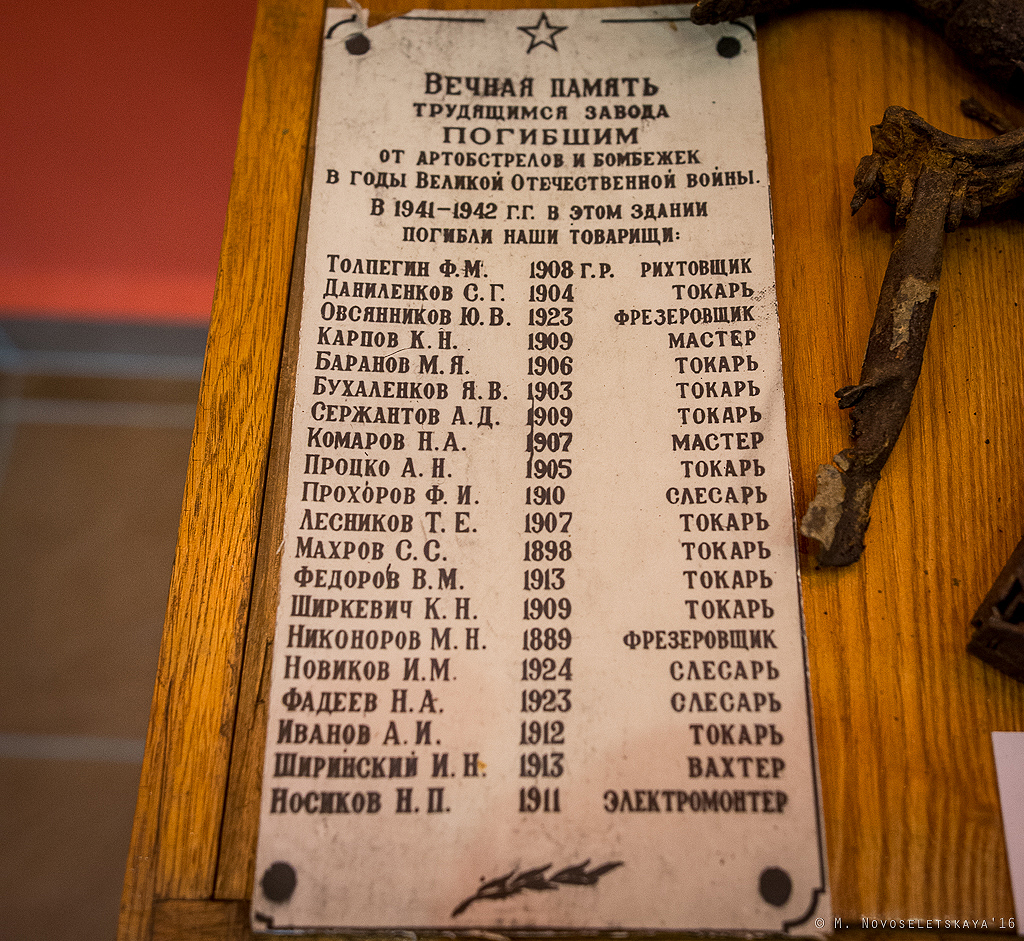 Вечная память
трудящимся завода
погибшим
от артобстрелов и бомбежек
в годы Великой Отечественной войны.
В 1941–1942 г.г. в этом здании
погибли наши товарищи:
Толпегин Ф.М. 1908 г.р. рихтовщик
Даниленков С.Г. 1904 токарь
Овсянников Ю.В. 1923 фрезеровщик
Карпов К.Н. 1909 мастер
Баранов М.Я. 1906 токарь
Бухаленков Я.В. 1903 токарь
Сержантов А.Д. 1909 токарь
Комаров Н.А. 1907 мастер
Процко А.Н. 1905 токарь
Прохоров Ф.И. 1910 слесарь
Лесников Т.Е. 1907 токарь
Махров С.С. 1898 токарь
Федоров В.М. 1913 токарь
Ширкевич К.Н. 1909 токарь
Никоноров М.Н. 1889 фрезеровщик
Новиков И.М. 1924 слесарь
Фадеев Н.А. 1923 слесарь
Иванов А.И. 1912 токарь
Ширинский И.Н. 1913 вахтер
Носиков Н.П. 1911 электромонтер
© M. Novoseletskaya'16